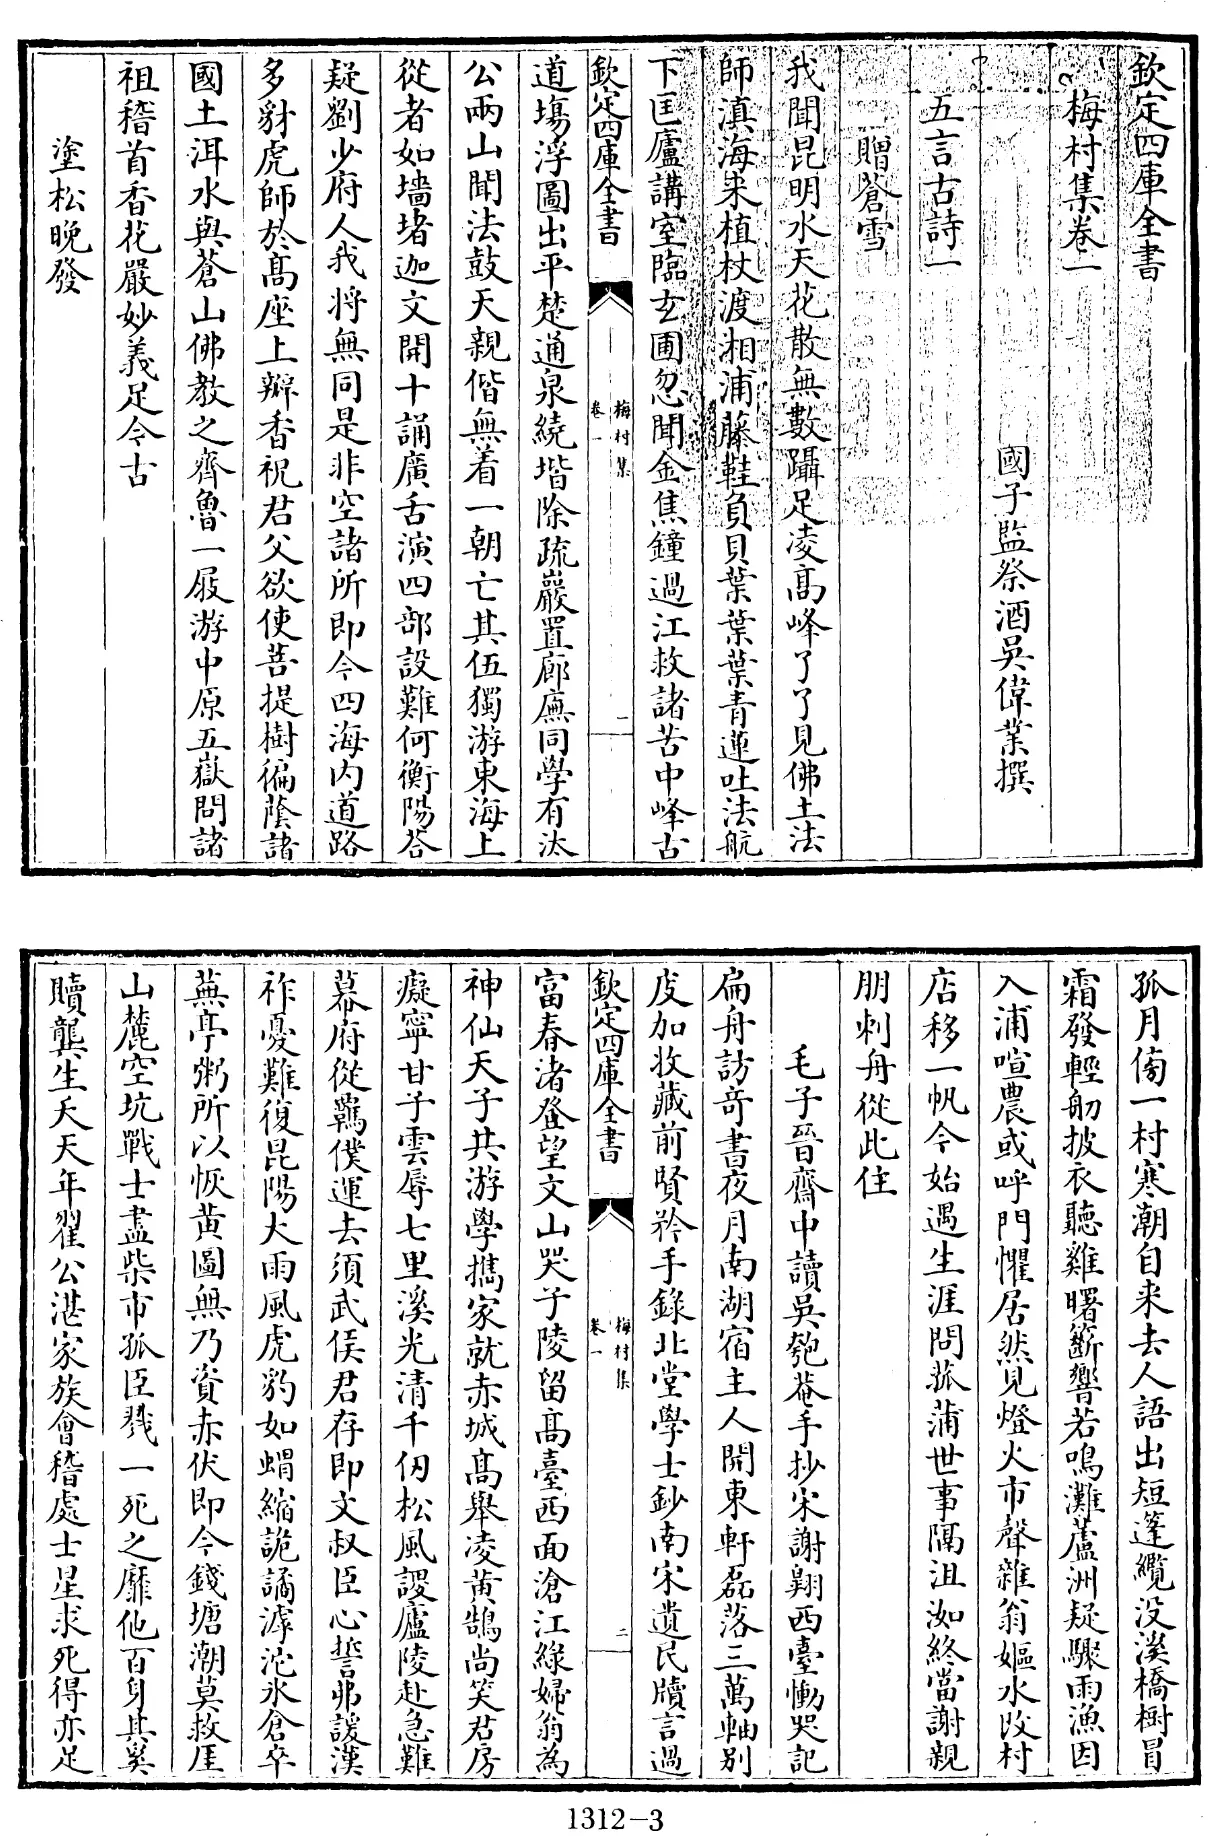 欽定四庫全書
梅村集卷一
國子監祭酒吳偉業撰
五言古詩一
贈蒼雪
我聞昆明水天花散無數躡足凌高峰了了見佛土法
師滇海來植杖渡湘浦藤鞋負貝葉葉葉青蓮吐法航
下匡廬講室臨玄圃忽聞金焦鐘過江救諸苦中峰古
欽定四庫全書
梅村集
卷一
一
道場浮圖出平楚通泉繞堦除疏巖置廊廡同學有汰
公兩山聞法鼓天親偕無着一朝亡其伍獨游東海上
從者如墻堵迦文開十誦廣舌演四部設難何衡陽荅
疑劉少府人我將無同是非空諸所即今四海內道路
多豺虎師於高座上瓣香祝君父欲使菩提樹徧蔭諸
國土洱水與蒼山佛教之齊魯一屐游中原五嶽問諸
祖稽首香花嚴妙義足今古
塗松晚發
孤月傍一村寒潮自來去人語出短篷纜没溪橋樹冒
霜發輕舠披衣聽雞曙籪響若鳴灘蘆洲疑驟雨漁因
入浦喧農或呼門懼居然見燈火市聲雜翁嫗水改村
店移一帆今始遇生涯問菰蒲世事隔沮洳終當謝親
朋刺舟從此住
毛子晉齋中讀吳匏菴手抄宋謝翺西臺慟哭記
扁舟訪奇書夜月南湖宿主人開東軒磊落三萬軸别
庋加收藏前賢矜手錄北堂學士鈔南宋遺民牘言過
欽定四庫全書
梅村集
卷一
二
富春渚登望文山哭子陵留高臺西面滄江綠婦翁為
神仙天子共游學携家就赤城高舉凌黄鵠尚笑君房
癡寧甘子雲辱七里溪光清千仞松風謖廬陵赴急難
幕府從羈僕運去須武侯君存即文叔臣心誓弗諼漢
祚憂難復昆陽大雨風虎豹如蝟縮詭譎滹沱氷倉卒
蕪亭粥所以恢黄圖無乃資赤伏即今錢塘潮莫救厓
山麓空坑戰士盡柴市孤臣戮一死之靡他百身其奚
贖龔生夭天年翟公湛家族會稽處士星求死得亦足
1312-3